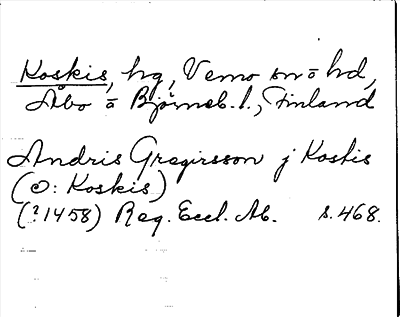 Koskis, hg, Vemo sn ō hd,
Åbo ō Björneb. l., Finland
Andris Gregirsson j Koskis
(ɔ: Koskis)
(?1458) Reg. Eccl. Ab. s. 468.